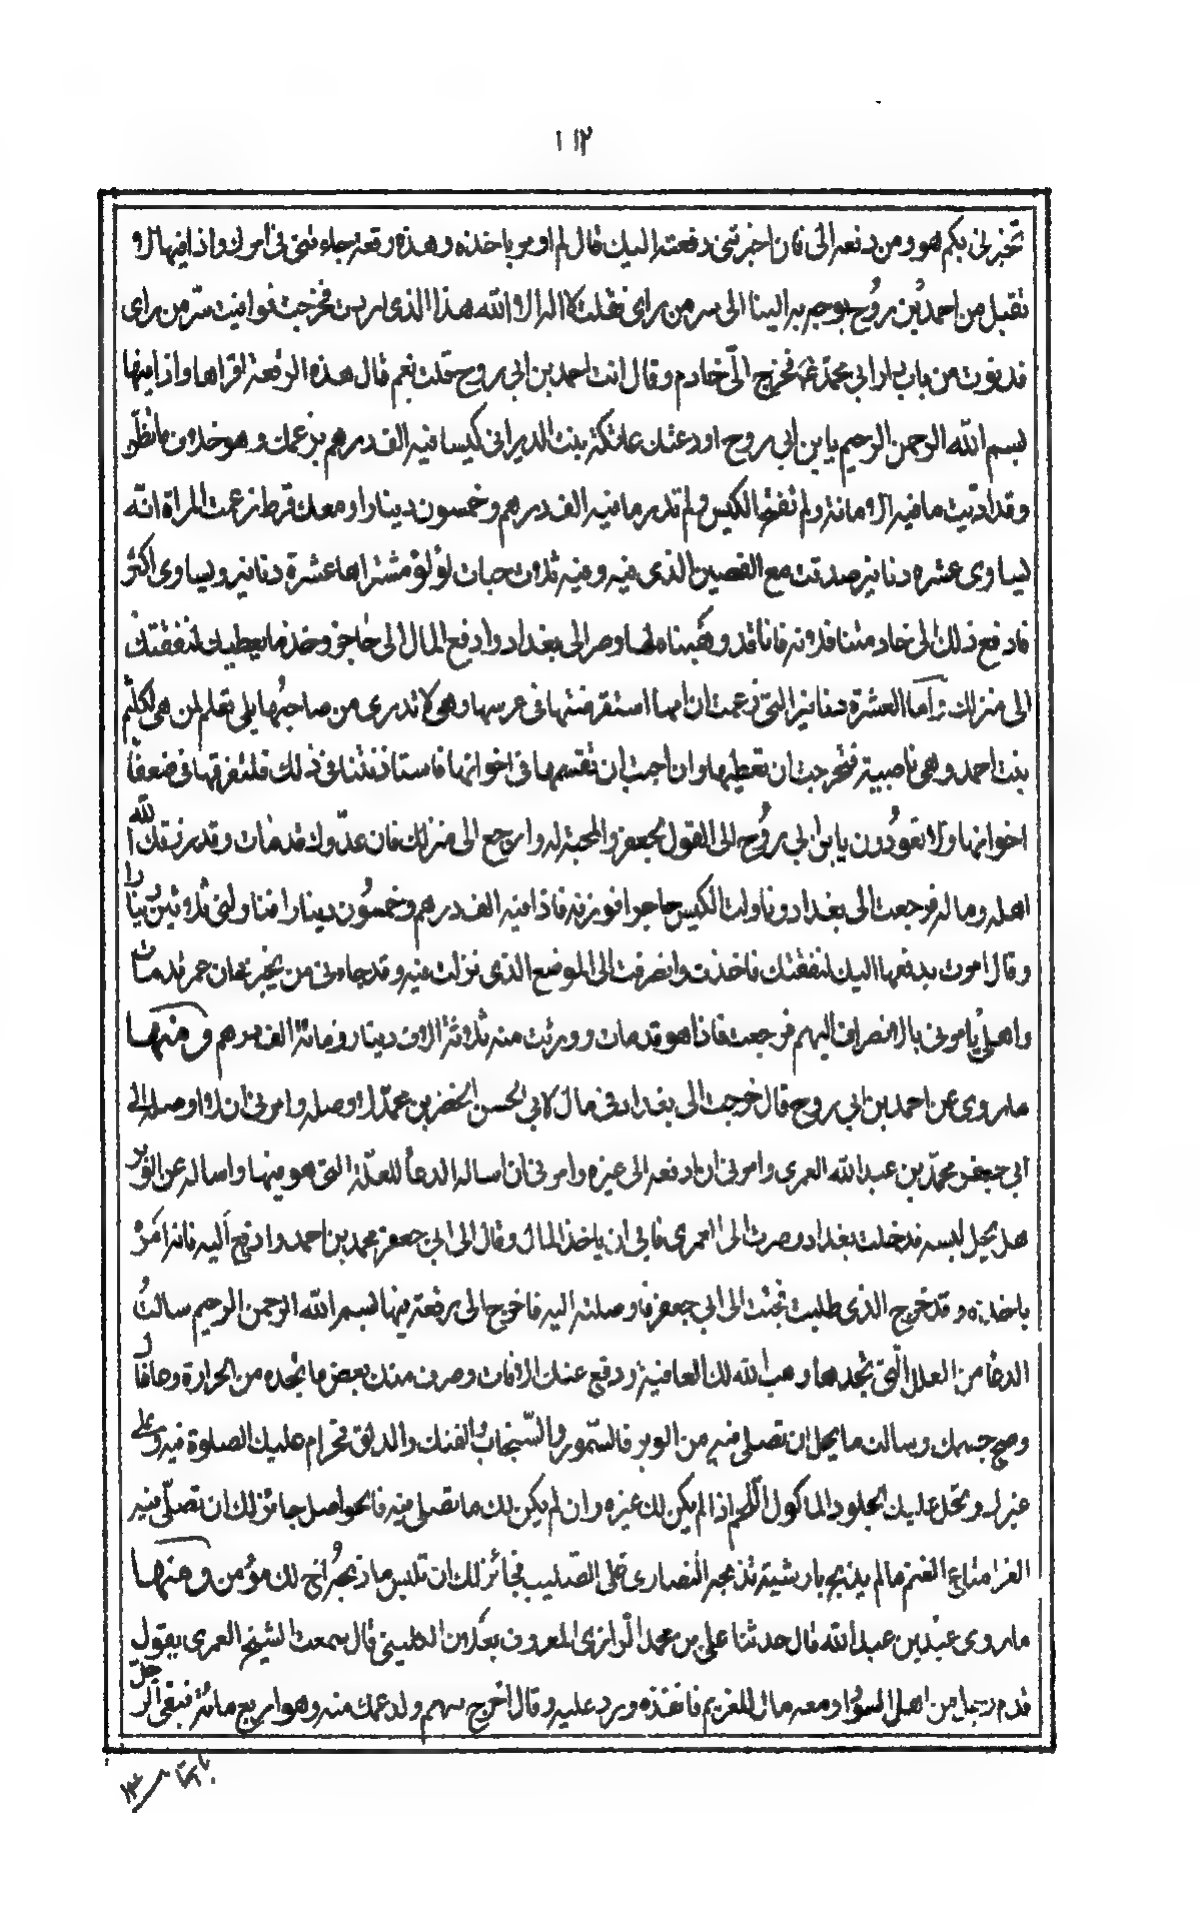 ١١٢
تخبرني بكم هو ومن دفعه الي فان اخبرتني دفعته اليك قال لم اومر باخذه وهذه رقعة جاءتني في امرك واذا فيها لا
تقبل من احمد بن روح توجه به الينا الى سر من راى فقلت لا اله الا الله هذا الذي اردت فخرجت فوافيت سر من راى
بسم الله الرحمن الرحيم يا بن ابي روح اودعتك عاتكة بنت الديراني كيسا فيه الف درهم بزعمك وهو خلاف ما تظن
وقد اديت ما فيه الامانة ولم تفتح الكيس ولم تدر ما فيه الف درهم وخمسون دينارا ومعك قرط زعمت المراة انه
يساوى عشرة دنانير صدقت مع الفصين الذى فيه وفيه ثلاث حبات لؤلؤ مشتراها عشرة دنانير ويساوى اكثر
فادفع ذلك الى خادمتنا فلانة فانا قد وهبناه لها وصر الى بغداد وادفع المال الى حاجز وخذ ما يعطيك لنفقتك
الى منزلك واما العشرة دنانير التي زعمت ان امها استقرضتها في عرسها وهي لا تدرى من صاحبها بلى تعلم لمن هي لكلثم
بنت احمد وهي ناصبية فتحرجت ان تعطيها وان احبت ان تقسمها في اخوانها فاستاذنتنا في ذلك فلتفرقها في ضعفا
اخوانها ولا تعودن يا بن ابي روح الى القول بجعفر والمحبة له وارجع الى منزلك فان عدوك قد مات وقد رزقك الله
اهله وماله فرجعت الى بغداد وناولت الكيس حاجزا فوزنه فاذا فيه الف درهم وخمسون دينارا فناولني ثلاثين دينارا
وقال امرت بدفعها اليك لنفقتك فاخذت وانصرفت الى الموضع الذى نزلت فيه وقد جاءني من يخبرني ان عمي قد مات
واهلي يامروني بالانصراف اليهم فرجعت فاذا هو قد مات وورثت منه ثلاثة الاف دينار ومائة الف درهم ومنها
ماروى عن احمد بن ابي روح قال خرجت الى بغداد في مال لابي الحسن الخضر بن محمد لاوصله وامرني ان لا اوصله الى
ابي جعفر محمد بن عبد الله العمرى وامرني ان ادفعه الى غيره وامرني ان اساله الدعا للعلة التي هو فيها واساله عن الوبر
هل يحل لبسه فدخلت بغداد وصرت الى العمرى فابى ان ياخذ المال وقال الى ابي جعفر محمد بن احمد وادفع اليه فانه امره
باخذه وقد خرج الذى طلبت فجئت الى ابي جعفر فاوصلته اليه فاخرج الي رقعة فيها بسم الله الرحمن الرحيم سالت
الدعا من العلل التي تجدها وهب الله لك العافية ودفع عنك الافات وصرف عنك بعض ما تجده من الحرارة وعافاك
وصح جسمك وسالت ما يحل ان تصلي فيه من الوبر والسمور والسنجاب والفنك والدلق فحرام عليك الصلوة فيه وعلى
غيرك ويحل عليك جلود الماكول اللحم اذا لم يكن لك غيره وان لم يكن لك ما تصلي فيه فالحواصل جائز لك ان تصلي فيه
ماروى عبد بن عبد الله قال حدثنا علي بن محمد الرازى المعروف بعلان الكليني قال سمعت الشيخ العمرى يقول
قدم رجل من اهل السواد ومعه مال للغريم فانفذه ورد عليه وقال اخرج سهم ولد عمك منه وهو اربع مائة فبقي الرجل